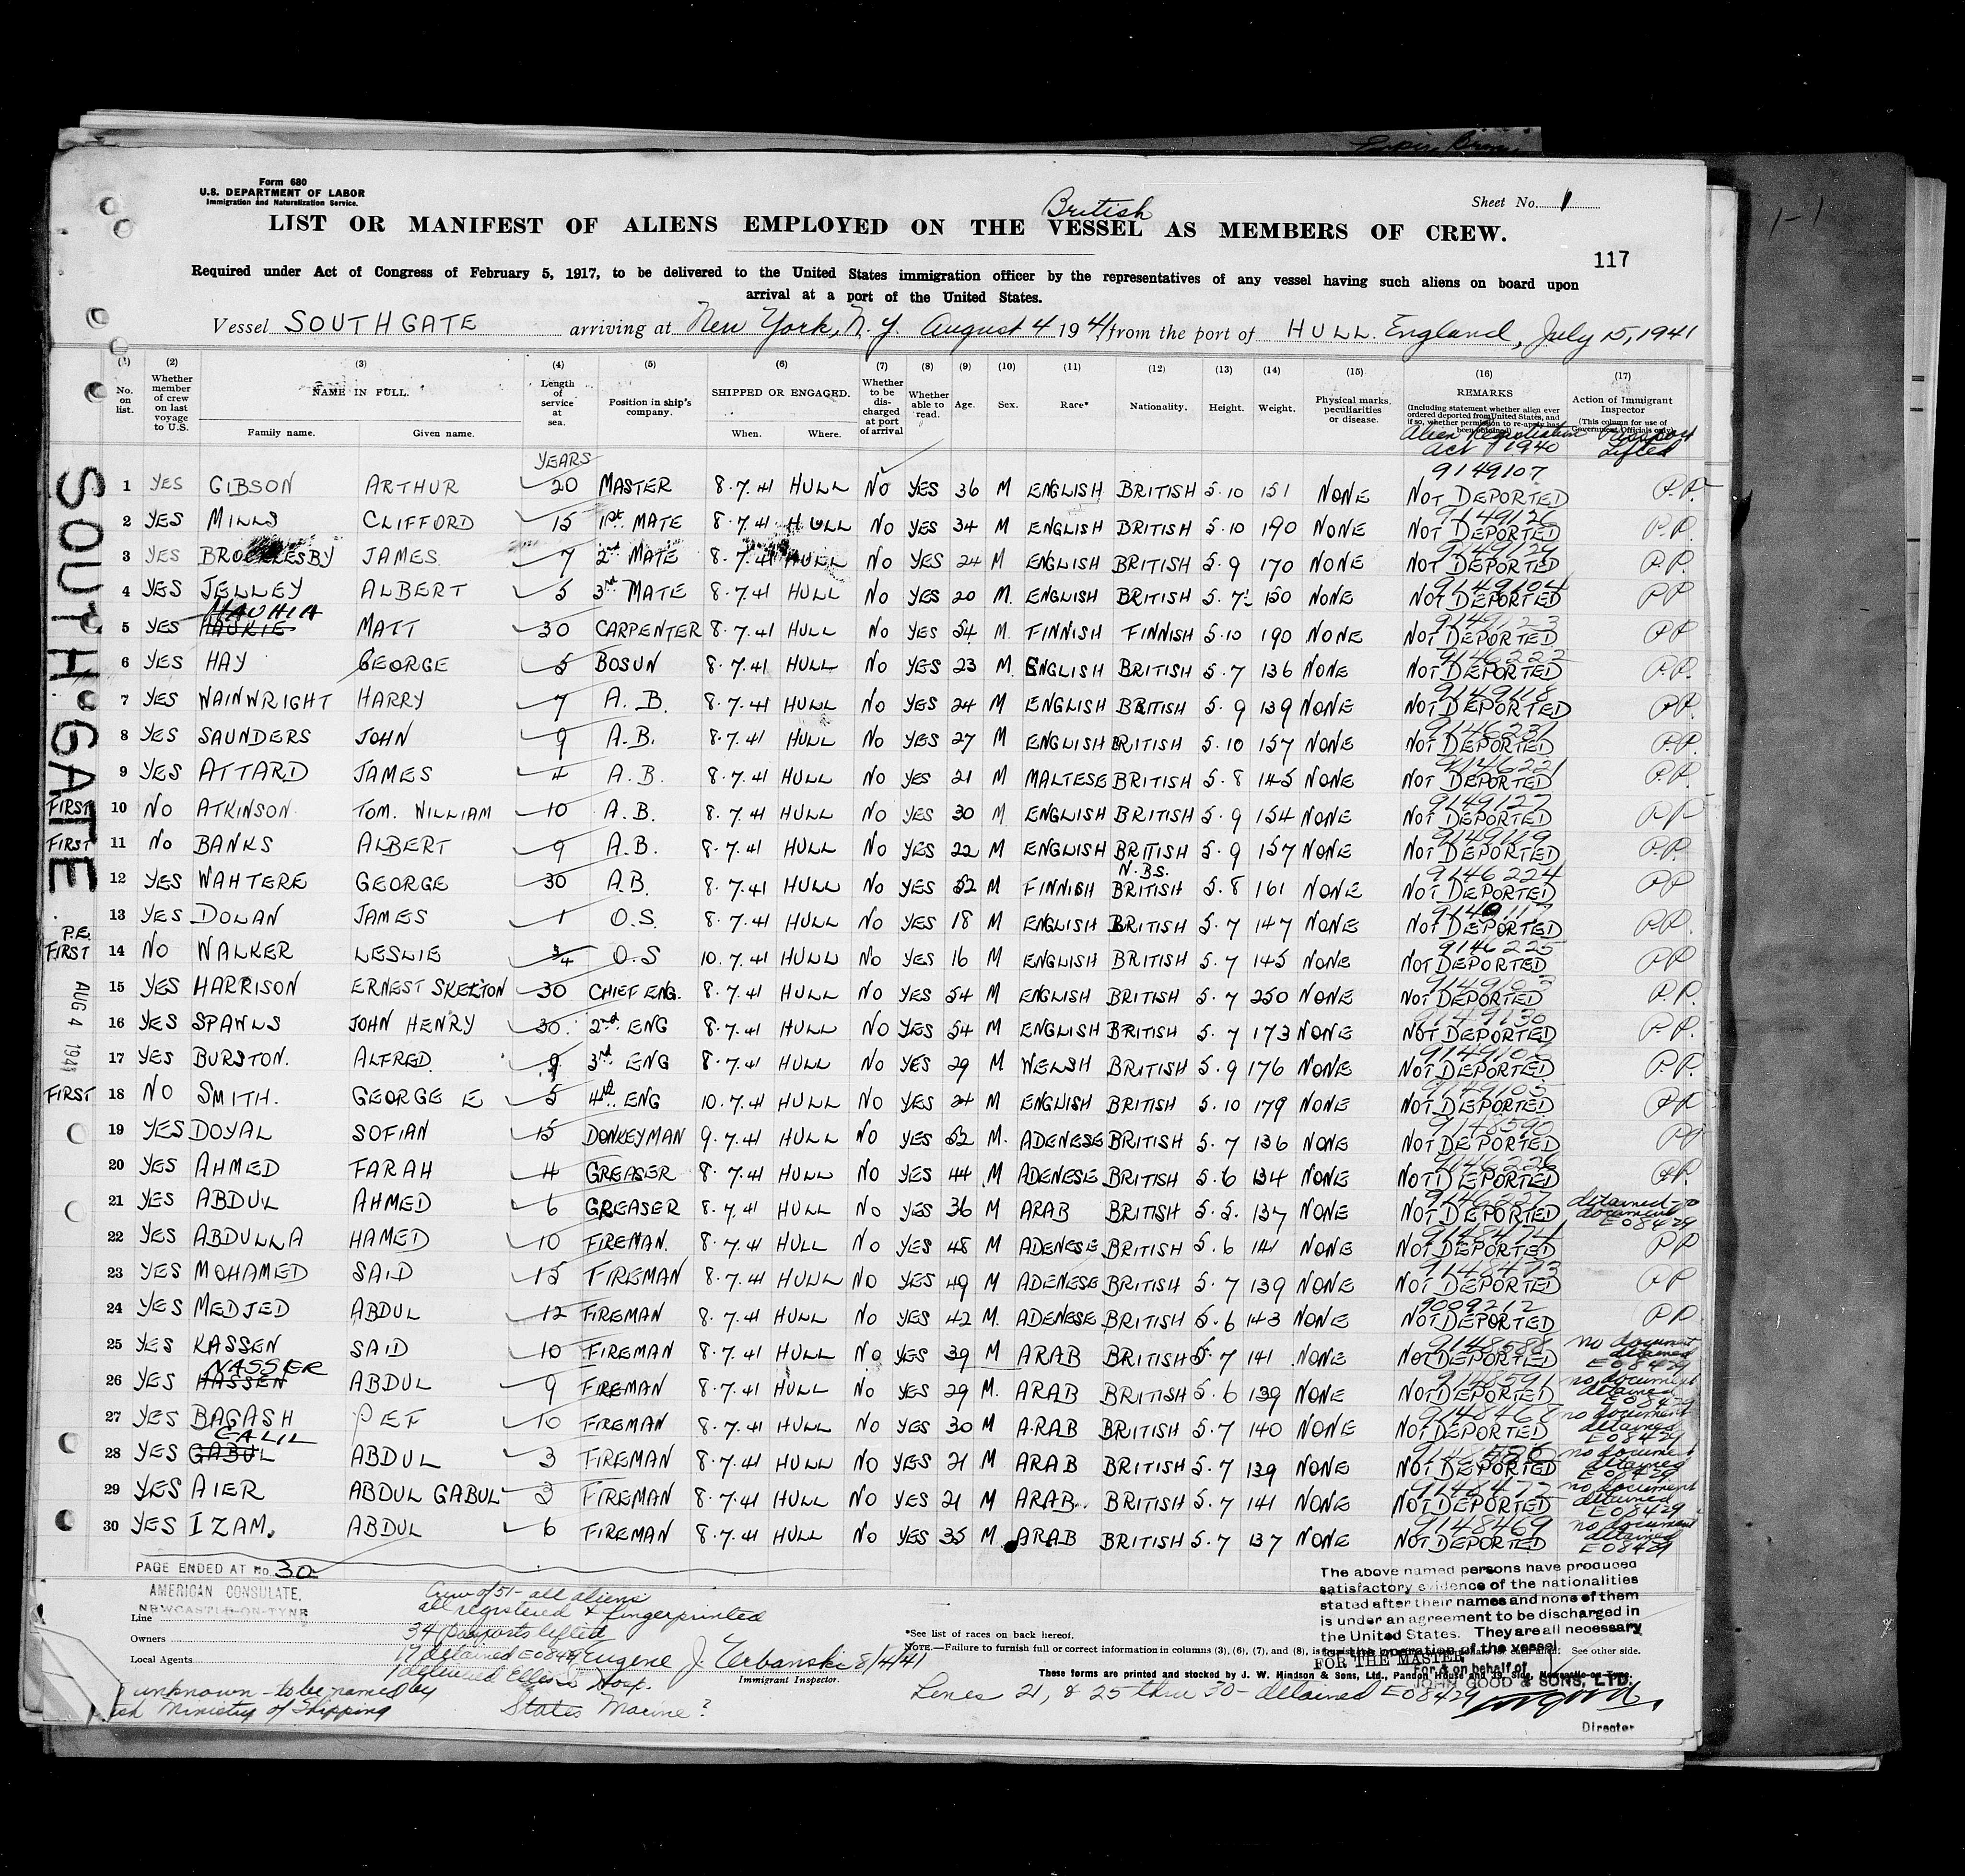 Form 680
U.S. DEPARTMENT OF LABOR
Immigration and Naturalization Service.
Sheet No. 1
British
LIST OR MANIFEST OF ALIENS EMPLOYED ON THE VESSEL AS MEMBERS OF CREW.
117
Required under Act of Congress of February 5, 1917, to be delivered to the United States immigration officer by the representatives of any vessel having such aliens on board upon
arrival at a port of the United States.
Vessel SOUTHGATE arriving at New York, N.Y. August 4 1941 from the port of HULL. England, July 15, 1941
(1) (2) (3) (4) (5) (6) (7) (8) (9) (10) (11) (12) (13) (14) (15) (16) (17)
No. on list. Whether member of crew on last voyage to U.S. NAME IN FULL. Family name. Given name. Length of service at sea. Position in ship's company. SHIPPED OR ENGAGED. When. Where. Whether to be discharged at port of arrival Whether able to read. Age. Sex. Race* Nationality. Height. Weight. Physical marks, peculiarities or disease. REMARKS (Including statement whether alien ever ordered deported from United States, and if so, whether permission to re-apply has been obtained) Action of Immigrant Inspector (This column for use of Government Officials only)
Alien Registration Act 1940 Passport Lifted
YEARS
SOUTHGATE
9149107
1 YES GIBSON ARTHUR 20 MASTER 8.7.41 HULL NO YES 36 M ENGLISH BRITISH 5.10 151 NONE NOT DEPORTED P.P.
9149126
2 YES MILLS CLIFFORD 15 1st MATE 8.7.41 HULL NO YES 34 M ENGLISH BRITISH 5.10 190 NONE NOT DEPORTED P.P.
9149129
3 YES BROCKLESBY JAMES 7 2nd MATE 8.7.41 HULL NO YES 24 M ENGLISH BRITISH 5.9 170 NONE NOT DEPORTED P.P.
9149104
4 YES JELLEY ALBERT 5 3rd MATE 8.7.41 HULL NO YES 20 M. ENGLISH BRITISH 5.7½ 150 NONE NOT DEPORTED PP
HAUHIA
9149123
5 YES HAUKIE MATT 30 CARPENTER 8.7.41 HULL NO YES 54 M. FINNISH FINNISH 5.10 190 NONE NOT DEPORTED PP
9146222
6 YES HAY GEORGE 5 BOSUN 8.7.41 HULL NO YES 23 M. ENGLISH BRITISH 5.7 136 NONE NOT DEPORTED P.P.
9149118
7 YES WAINWRIGHT HARRY 7 A.B. 8.7.41 HULL NO YES 24 M ENGLISH BRITISH 5.9 139 NONE NOT DEPORTED PP.
9146231
8 YES SAUNDERS JOHN 9 A.B. 8.7.41 HULL NO YES 27 M ENGLISH BRITISH 5.10 157 NONE NOT DEPORTED P.P.
9146221
9 YES ATTARD JAMES 4 A.B. 8.7.41 HULL NO YES 21 M MALTESE BRITISH 5.8 145 NONE NOT DEPORTED P.P.
9149127
FIRST 10 NO ATKINSON TOM. WILLIAM 10 A.B. 8.7.41 HULL NO YES 30 M ENGLISH BRITISH 5.9 154 NONE NOT DEPORTED PP
9149119
FIRST 11 NO BANKS ALBERT 9 A.B. 8.7.41 HULL NO YES 22 M ENGLISH BRITISH 5.9 157 NONE NOT DEPORTED P.P.
N.B.S. 9146224
12 YES WAHTERE GEORGE 30 A.B. 8.7.41 HULL NO YES 52 M FINNISH BRITISH 5.8 161 NONE NOT DEPORTED PP
13 YES DOLAN JAMES 1 O.S. 8.7.41 HULL NO YES 18 M ENGLISH BRITISH 5.7 147 NONE NOT DEPORTED PP.
P.E.
9146225
FIRST 14 NO WALKER LESLIE 3/4 O.S 10.7.41 HULL NO YES 16 M ENGLISH BRITISH 5.7 145 NONE NOT DEPORTED PP
9149103
15 YES HARRISON ERNEST SKELTON 30 CHIEF ENG. 8.7.41 HULL NO YES 54 M ENGLISH BRITISH 5.7 250 NONE NOT DEPORTED P.P.
AUG 4 1941
9149130
16 YES SPANLS JOHN HENRY 30. 2nd ENG 8.7.41 HULL NO YES 54 M ENGLISH BRITISH 5.7 173 NONE NOT DEPORTED P.P.
17 YES BURSTON. ALFRED. 9 3rd ENG 8.7.41 HULL NO YES 29 M WELSH BRITISH 5.9 176 NONE NOT DEPORTED P.P.
9149105
FIRST 18 NO SMITH. GEORGE E 5 4th ENG 10.7.41 HULL NO YES 24 M ENGLISH BRITISH 5.10 179 NONE NOT DEPORTED PP
9148590
19 YES DOYAL SOFIAN 15 DONKEYMAN 9.7.41 HULL NO YES 52 M. ADENESE BRITISH 5.7 136 NONE NOT DEPORTED PP
9146226
20 YES AHMED FARAH 4 GREASER 8.7.41 HULL NO YES 44 M ADENESE BRITISH 5.6 134 NONE NOT DEPORTED PP.
9146227
21 YES ABDUL AHMED 6 GREASER 8.7.41 HULL NO YES 36 M ARAB BRITISH 5.5. 137 NONE NOT DEPORTED detained - no document E08429
9148474
22 YES ABDULLA HAMED 10 FIREMAN. 8.7.41 HULL NO YES 48 M ADENESE BRITISH 5.6 141 NONE NOT DEPORTED PP
9148473
23 YES MOHAMED SAID 15 FIREMAN 8.7.41 HULL NO YES 49 M ADENESE BRITISH 5.7 139 NONE NOT DEPORTED PP
9009212
24 YES MEDJED ABDUL 12 FIREMAN 8.7.41 HULL NO YES 42 M. ADENESE BRITISH 5.6 143 NONE NOT DEPORTED PP
9148588
25 YES KASSEN SAID 10 FIREMAN 8.7.41 HULL NO YES 39 M ARAB BRITISH 5.7 141 NONE NOT DEPORTED no document detained E08429
NASSER
9148591
26 YES HASSEN ABDUL 9 FIREMAN 8.7.41 HULL NO YES 29 M. ARAB BRITISH 5.6 139 NONE NOT DEPORTED no document detained E08429
9148468
27 YES BAGASH PEF 10 FIREMAN 8.7.41 HULL NO YES 30 M ARAB BRITISH 5.7 140 NONE NOT DEPORTED no document detained E08429
GALIL
28 YES GABUL ABDUL 3 FIREMAN 8.7.41 HULL NO YES 21 M ARAB BRITISH 5.7 139 NONE NOT DEPORTED no document detained E08429
9148472
29 YES AIER ABDUL GABUL 3 FIREMAN 8.7.41 HULL NO YES 21 M ARAB. BRITISH 5.7 141 NONE NOT DEPORTED no document detained E08429
9148469
30 YES IZAM. ABDUL 6 FIREMAN 8.7.41 HULL NO YES 35 M. ARAB BRITISH 5.7 137 NONE NOT DEPORTED no document detained E08429
PAGE ENDED AT No. 30
AMERICAN CONSULATE,
NEWCASTLE-ON-TYNE
Crew of 51 - all aliens
all registered & fingerprinted
34 passports lifted
17 detained E08429
Line
Owners
Local Agents
Eugene J. Terbanski 8/4/41
Immigrant Inspector.
unknown - to be named by
Ministry of Shipping
States Marine?
The above named persons have produced
satisfactory evidence of the nationalities
stated after their names and none of them
is under an agreement to be discharged in
the United States. They are all necessary
for the operation of the vessel
FOR THE MASTER
For & on behalf of
JOHN GOOD & SONS, LTD.
Director
*See list of races on back hereof.
NOTE.—Failure to furnish full or correct information in columns (3), (6), (7), and (8), is See other side.
These forms are printed and stocked by J. W. Hindson & Sons, Ltd., Pandon House and 39, Side, Newcastle-on-Tyne.
Lines 21, & 25 thru 30 - detained E08429